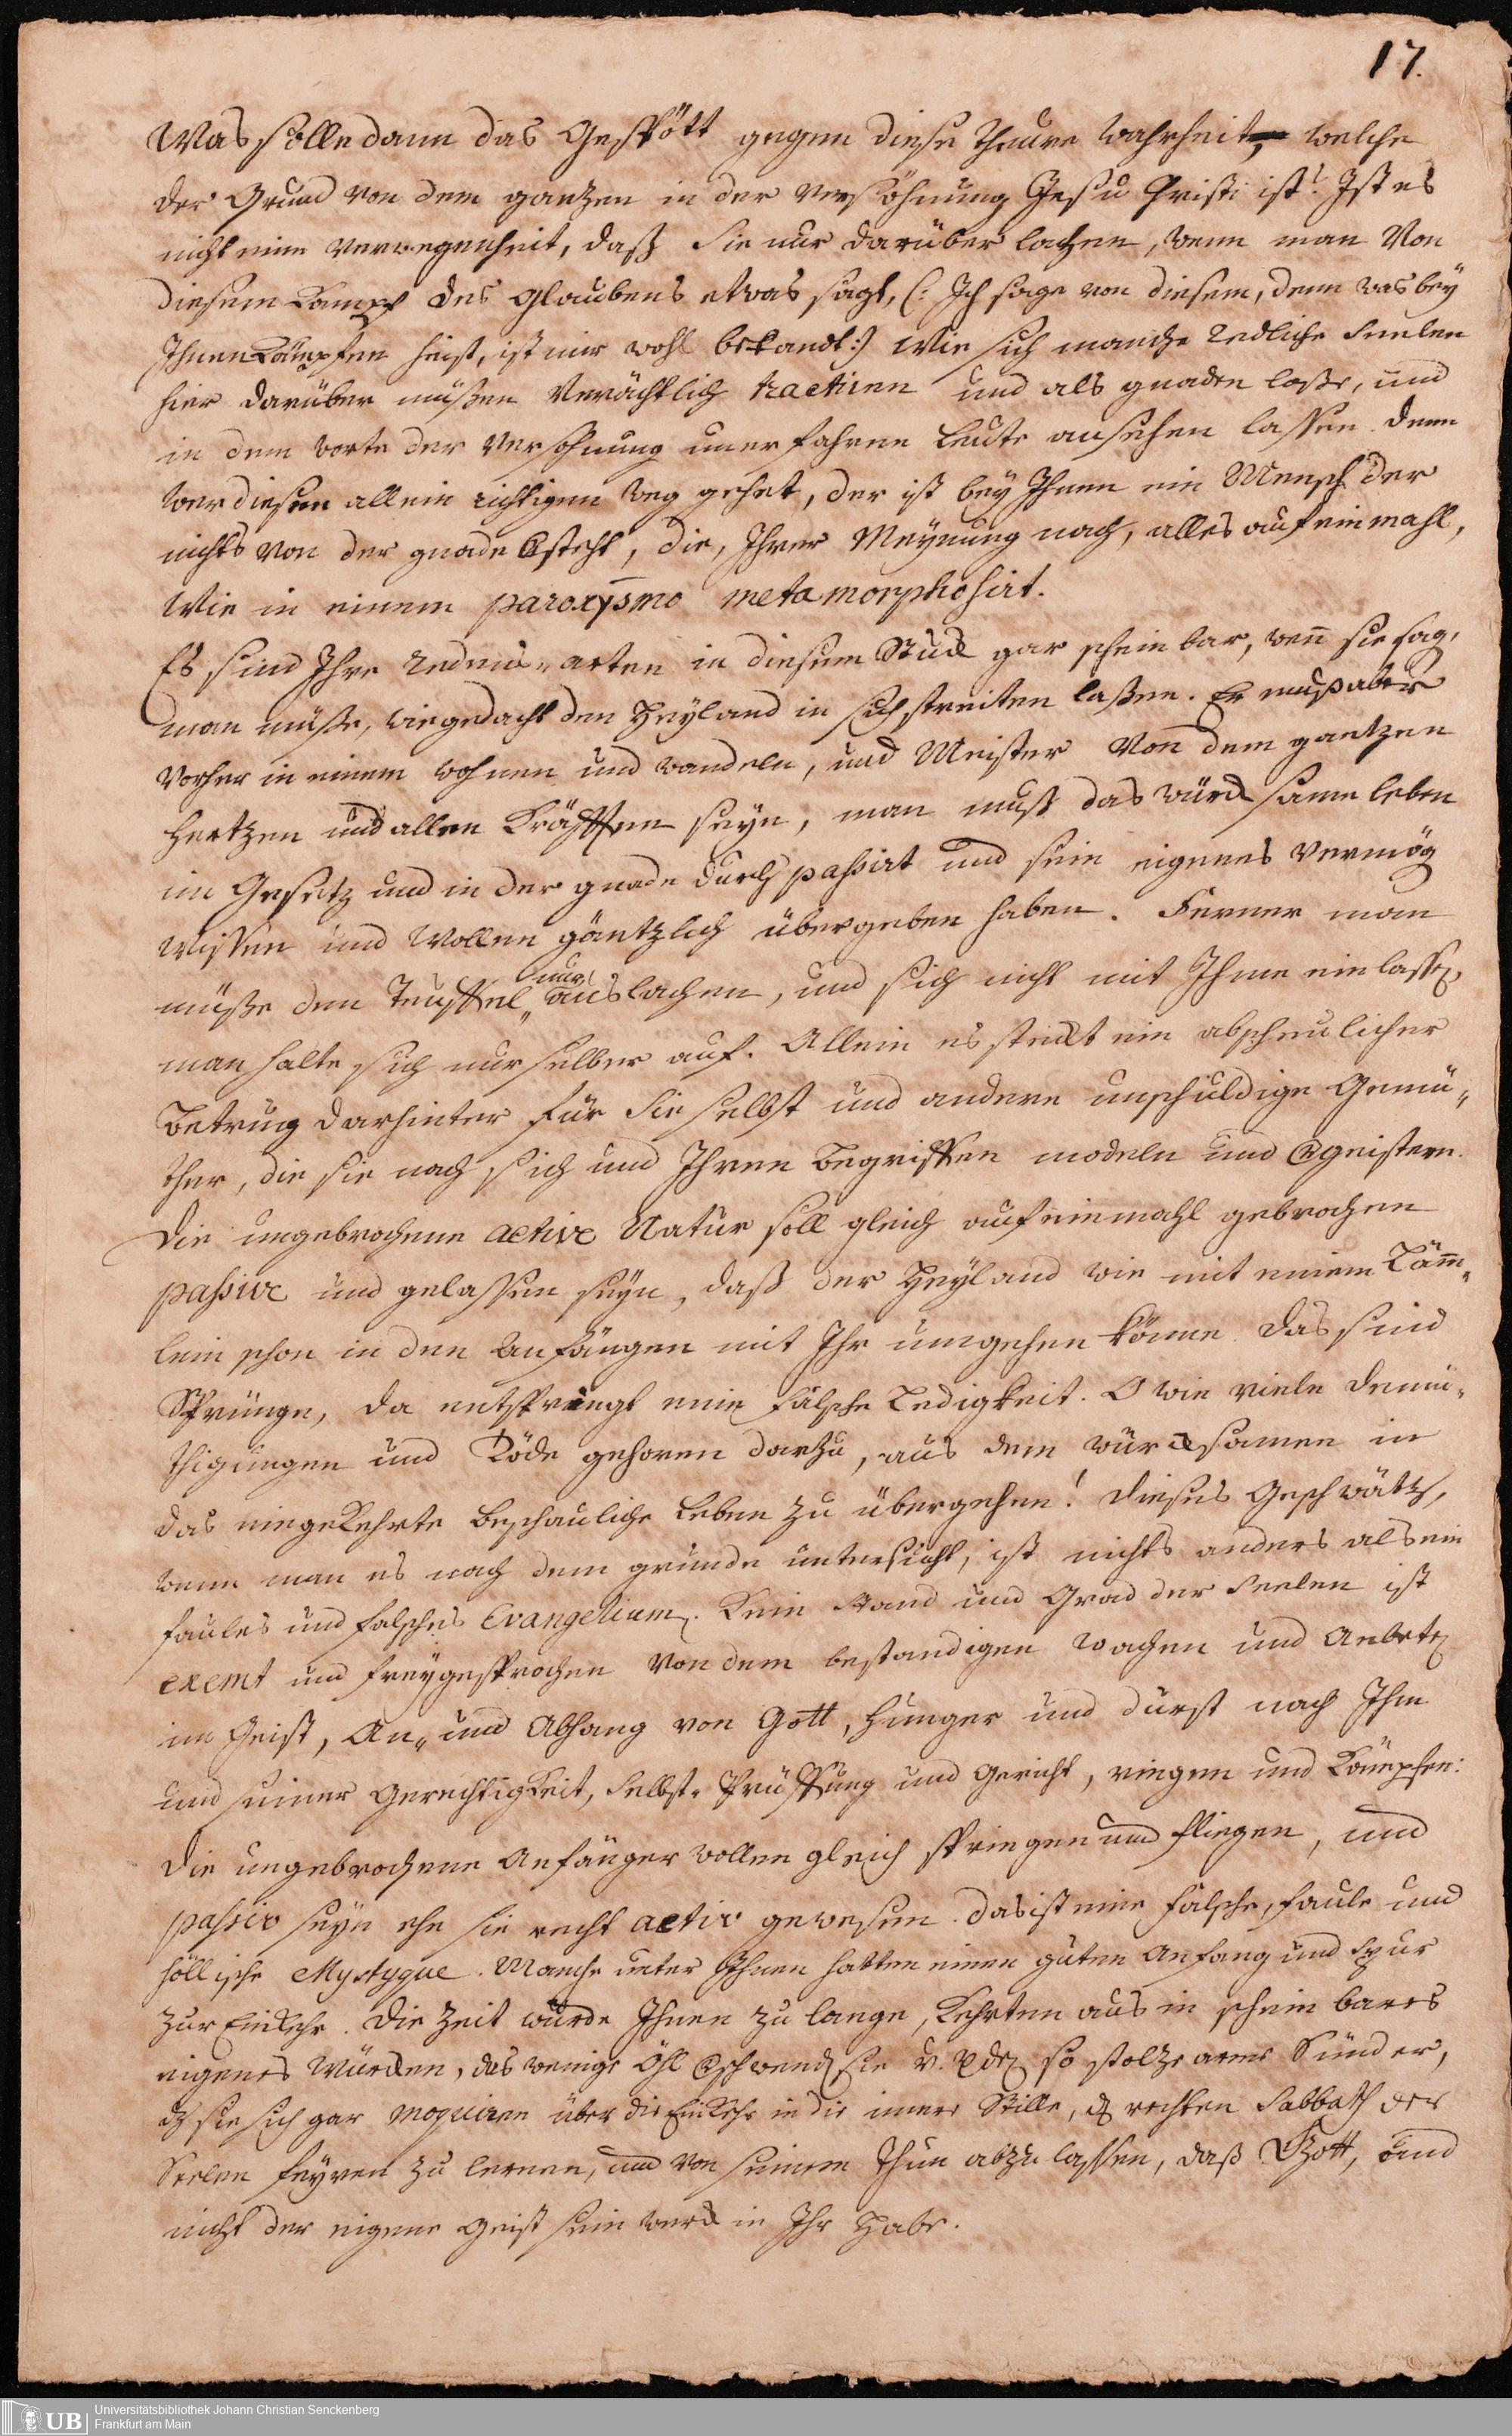 17.
Was solle dann das Gespött gegen diese Theure Wahrheit, welche
der Grund von dem gantzen in der Versöhnung Jesu Christi ist? Ist es
nicht eine Verwegenheit, daß Sie nur darüber lachen, wenn man Von
diesem Kampf des Glaubens etwas sagt, (: Ich sage von diesem, denn was bey
Ihnen Kämpfen heist, ist mir wohl bekandt:) Wie sich manche redliche Seelen
hier darüber müßen Verächtlich tractiren und als gnaden loße, und
in dem worte der Versohnung unerfahrne Leute ansehen lassen. denn
wer diesen allein richtigen Weg gehet, der ist bey Ihnen ein Mensch der
nichts von der gnade versteht, die, Ihrer Meynung nach, alles auf einmahl,
Wie in einem paroxysmo metamorphosirt.
Es sind Ihre redens-arten in diesem Stück gar scheinbar, wenn sie sag,
man müße, wie gedacht den Heyland in sich streiten laßen. Er muß aber
Vorher in einem wohnen und wandeln, und Meister Von dem gantzen
Hertzen und allen Kräfften seyn, man muß das würcksame leben
im Gesetz und in der gnade durch passirt und sein eigenes Vermög
Wissen und Wollen gäntzlich übergeben haben. Ferner man
müße den Teuffel nur auslachen, und sich nicht mit Ihme einlassen,
man halte sich nur selber auf. Allein es steckt ein abscheulicher
Betrug darhinter für Sie selbst und andere unschuldige Gemü-
ther, die sie nach sich und Ihren Begriffen modeln und vergeistern.
Die ungebrochene active Natur soll gleich auf einmahl gebrochen
passive und gelassen seyn, daß der Heyland wie mit einem Lämm-
lein schon in den Anfängen mit Ihr umgehen könne. das sind
Sprünge, da entspringt eine falsche Ledigkeit. O wie viele demü-
thigungen und Töde gehoren darzu, aus dem würcksamen in
das eingekehrte beschauliche Leben zu übergehen! dieses Geschwätz,
wenn man es nach dem grunde untersucht, ist nichts anders als ein
faules und falsches Evangelium. Kein Stand und Grad der Seelen ist
exemt und freygesprochen Von dem bestandigen wachen und Anbeten
im Geist, An- und Abhang von Gott, Hunger und durst nach Ihm
und seiner Gerechtigkeit, Selbst-Prüffung und Gericht, ringen und Kämpfen:
Die ungebrochene Anfänger wollen gleich springen und fliegen, und
passiv seyn ehe sie recht activ gewesen. das ist eine falsche, faule und
höllische Mystyque. Manche unter Ihnen hatten einen guten Anfang und Spur
zur Einkehr. die Zeit wurde Ihnen zu lange, kehrten aus in scheinbares
eigenes Würcken, das wenige Öhl verschwend sie u. werden so stolze arme Sünder,
daß sie sich gar moquiren über die Einkehr in die innere Stille, den rechten Sabbath der
Seelen feyren zu lernen, und von seinem Thun abzulassen, daß Gott, und
nicht der eigene Geist sein werck in Ihr habe.
Universitätsbibliothek Johann Christian Senckenberg
Frankfurt am Main
UB